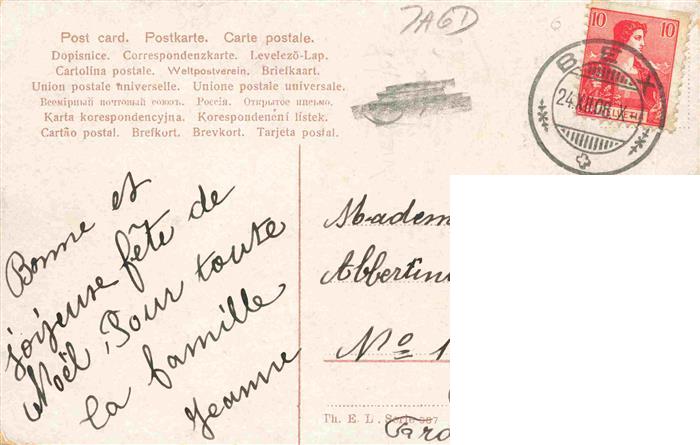 Post card. Postkarte. Carte postale.
Dopisnice. Correspondenzkarte. Levelező-Lap.
Cartolina postale. Weltpostverein. Briefkaart.
Union postale universelle. Unione postale universale.
Всемірный почтовый союзъ. Россія. Открытое письмо.
Karta korespondencyjna. Korespondenční lístek.
Cartão postal. Brefkort. Brevkort. Tarjeta postal.
JAGD
10 10
BEX
24.XII.08
Bonne et
joijeuse fête de
Noël, Pour toute
la famille
Jeanne
Madem
Abbertin
No 1
Th. E. L. Serie